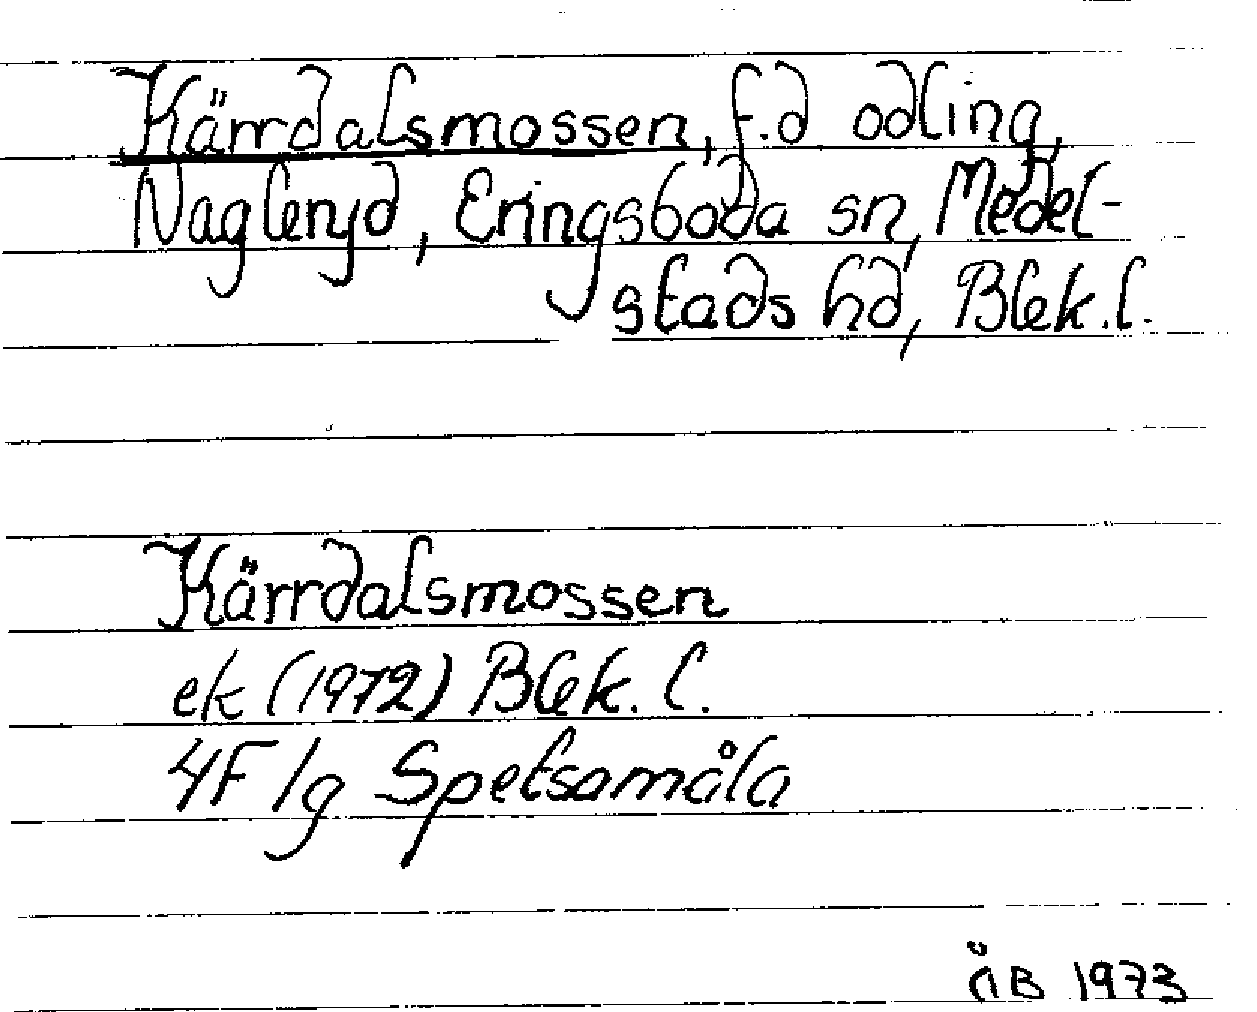 Kärrdalsmossen, f.d odling,
Nagleryd, Eringsboda sn, Medel-
stads hd, Blek.l.
Kärrdalsmossen
ek (1972) Blek. l.
4F 1g Spetsamåla
ÅB 1973